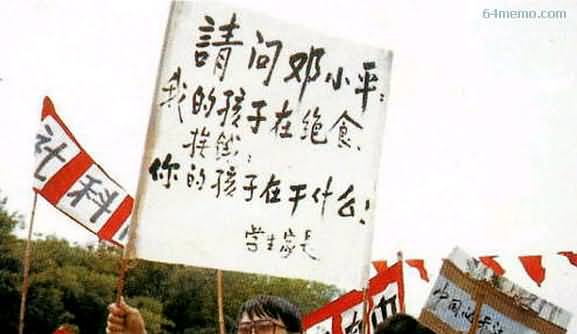 64memo.com
請问邓小平:
我的孩子在绝食、
挨餓;
你的孩子在干什么!
学生家长
社科
中国